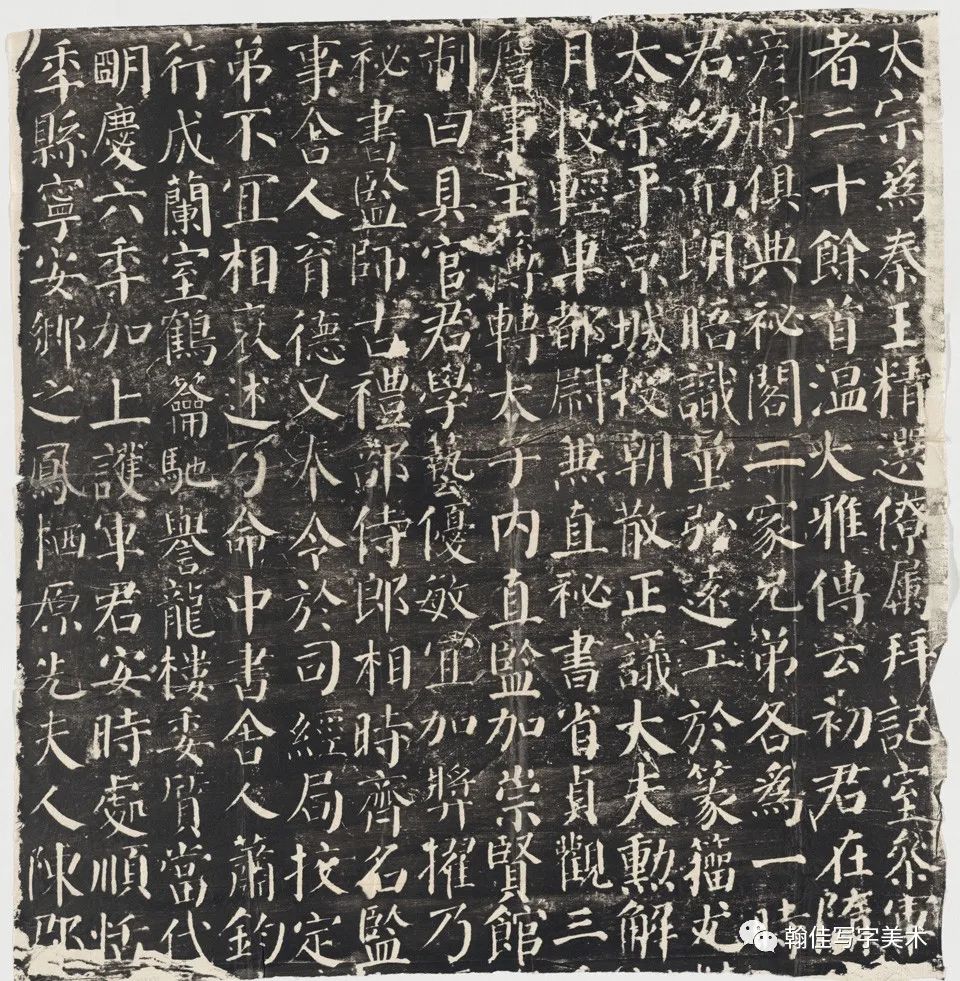 太宗爲秦王精選僚属拜記室叅軍
者二十餘首温大雅傳云初君在隋
彦將俱典祕閣二家兄弟各爲一時
君幼而朗晤識量弘遠工於篆籀尤
太宗平京城授朝散正議大夫勳解
月授輕車都尉兼直秘書省貞觀三
詹事主簿轉太子内直監加崇賢館
制曰具官君學藝優敏宜加奬擢乃
秘書監師古禮部侍郎相時齊名監
事舍人育德又奉令於司經局挍定
弟不宜相褒述乃命中書舍人蕭鈞
行成蘭室鶴籥馳譽龍樓委質當代
明慶六秊加上護軍君安時處順恬
秊縣寧安鄉之鳳栖原先夫人陳郡
翰佳写字美术